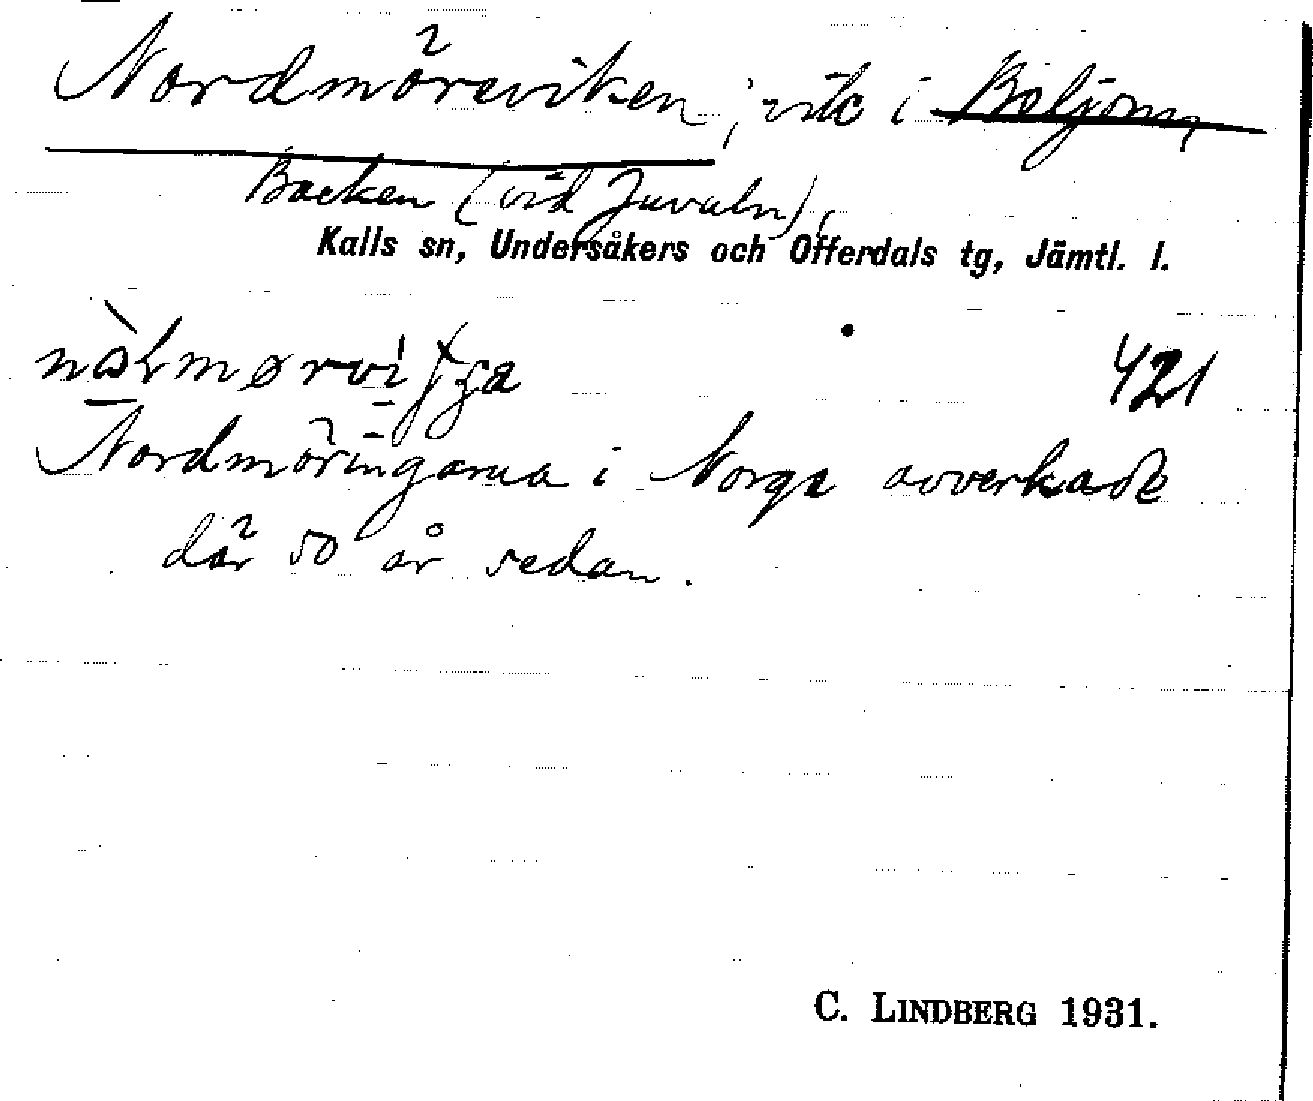 Nordmöreviken, vik i Boljom,
Backen (vid Juvuln),
Kalls sn, Undersåkers och Offerdals tg, Jämtl. l.
421
Nordmöringarna i Norge avverkade
där 50 år sedan.
C. LINDBERG 1931.